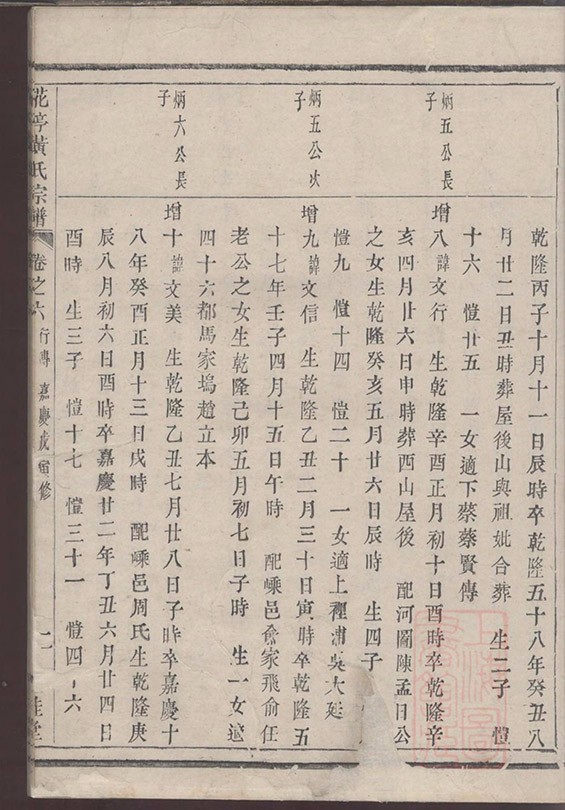 乾隆丙子十月十一日辰時卒乾隆五十八年癸丑八
月廿二日丑時葬屋後山與祖妣合葬 生二子 愷
十六 愷廿五 一女適下蔡蔡賢傳
炳五公長子
增八諱文行 生乾隆辛酉正月初十日酉時卒乾隆辛
亥四月廿六日申時葬西山屋後 配河圖陳孟日公
之女生乾隆癸亥五月廿六日辰時 生四子
愷九 愷十四 愷二十 一女適上裡浦吳大延
炳五公次子
增九諱文信 生乾隆乙丑二月三十日寅時卒乾隆五
十七年壬子四月十五日午時 配嵊邑俞家飛俞任
老公之女生乾隆己卯五月初七日子時 生一女適
四十六都馬家塢趙立本
炳六公長子
增十諱文美 生乾隆乙丑七月廿八日子時卒嘉慶十
八年癸酉正月十三日戌時 配嵊邑周氏生乾隆庚
辰八月初六日酉時卒嘉慶廿二年丁丑六月廿四日
酉時 生三子 愷十七 愷三十一 愷四十六
花亭黃氏宗譜 卷之六 行傳 嘉慶戊寅修 二